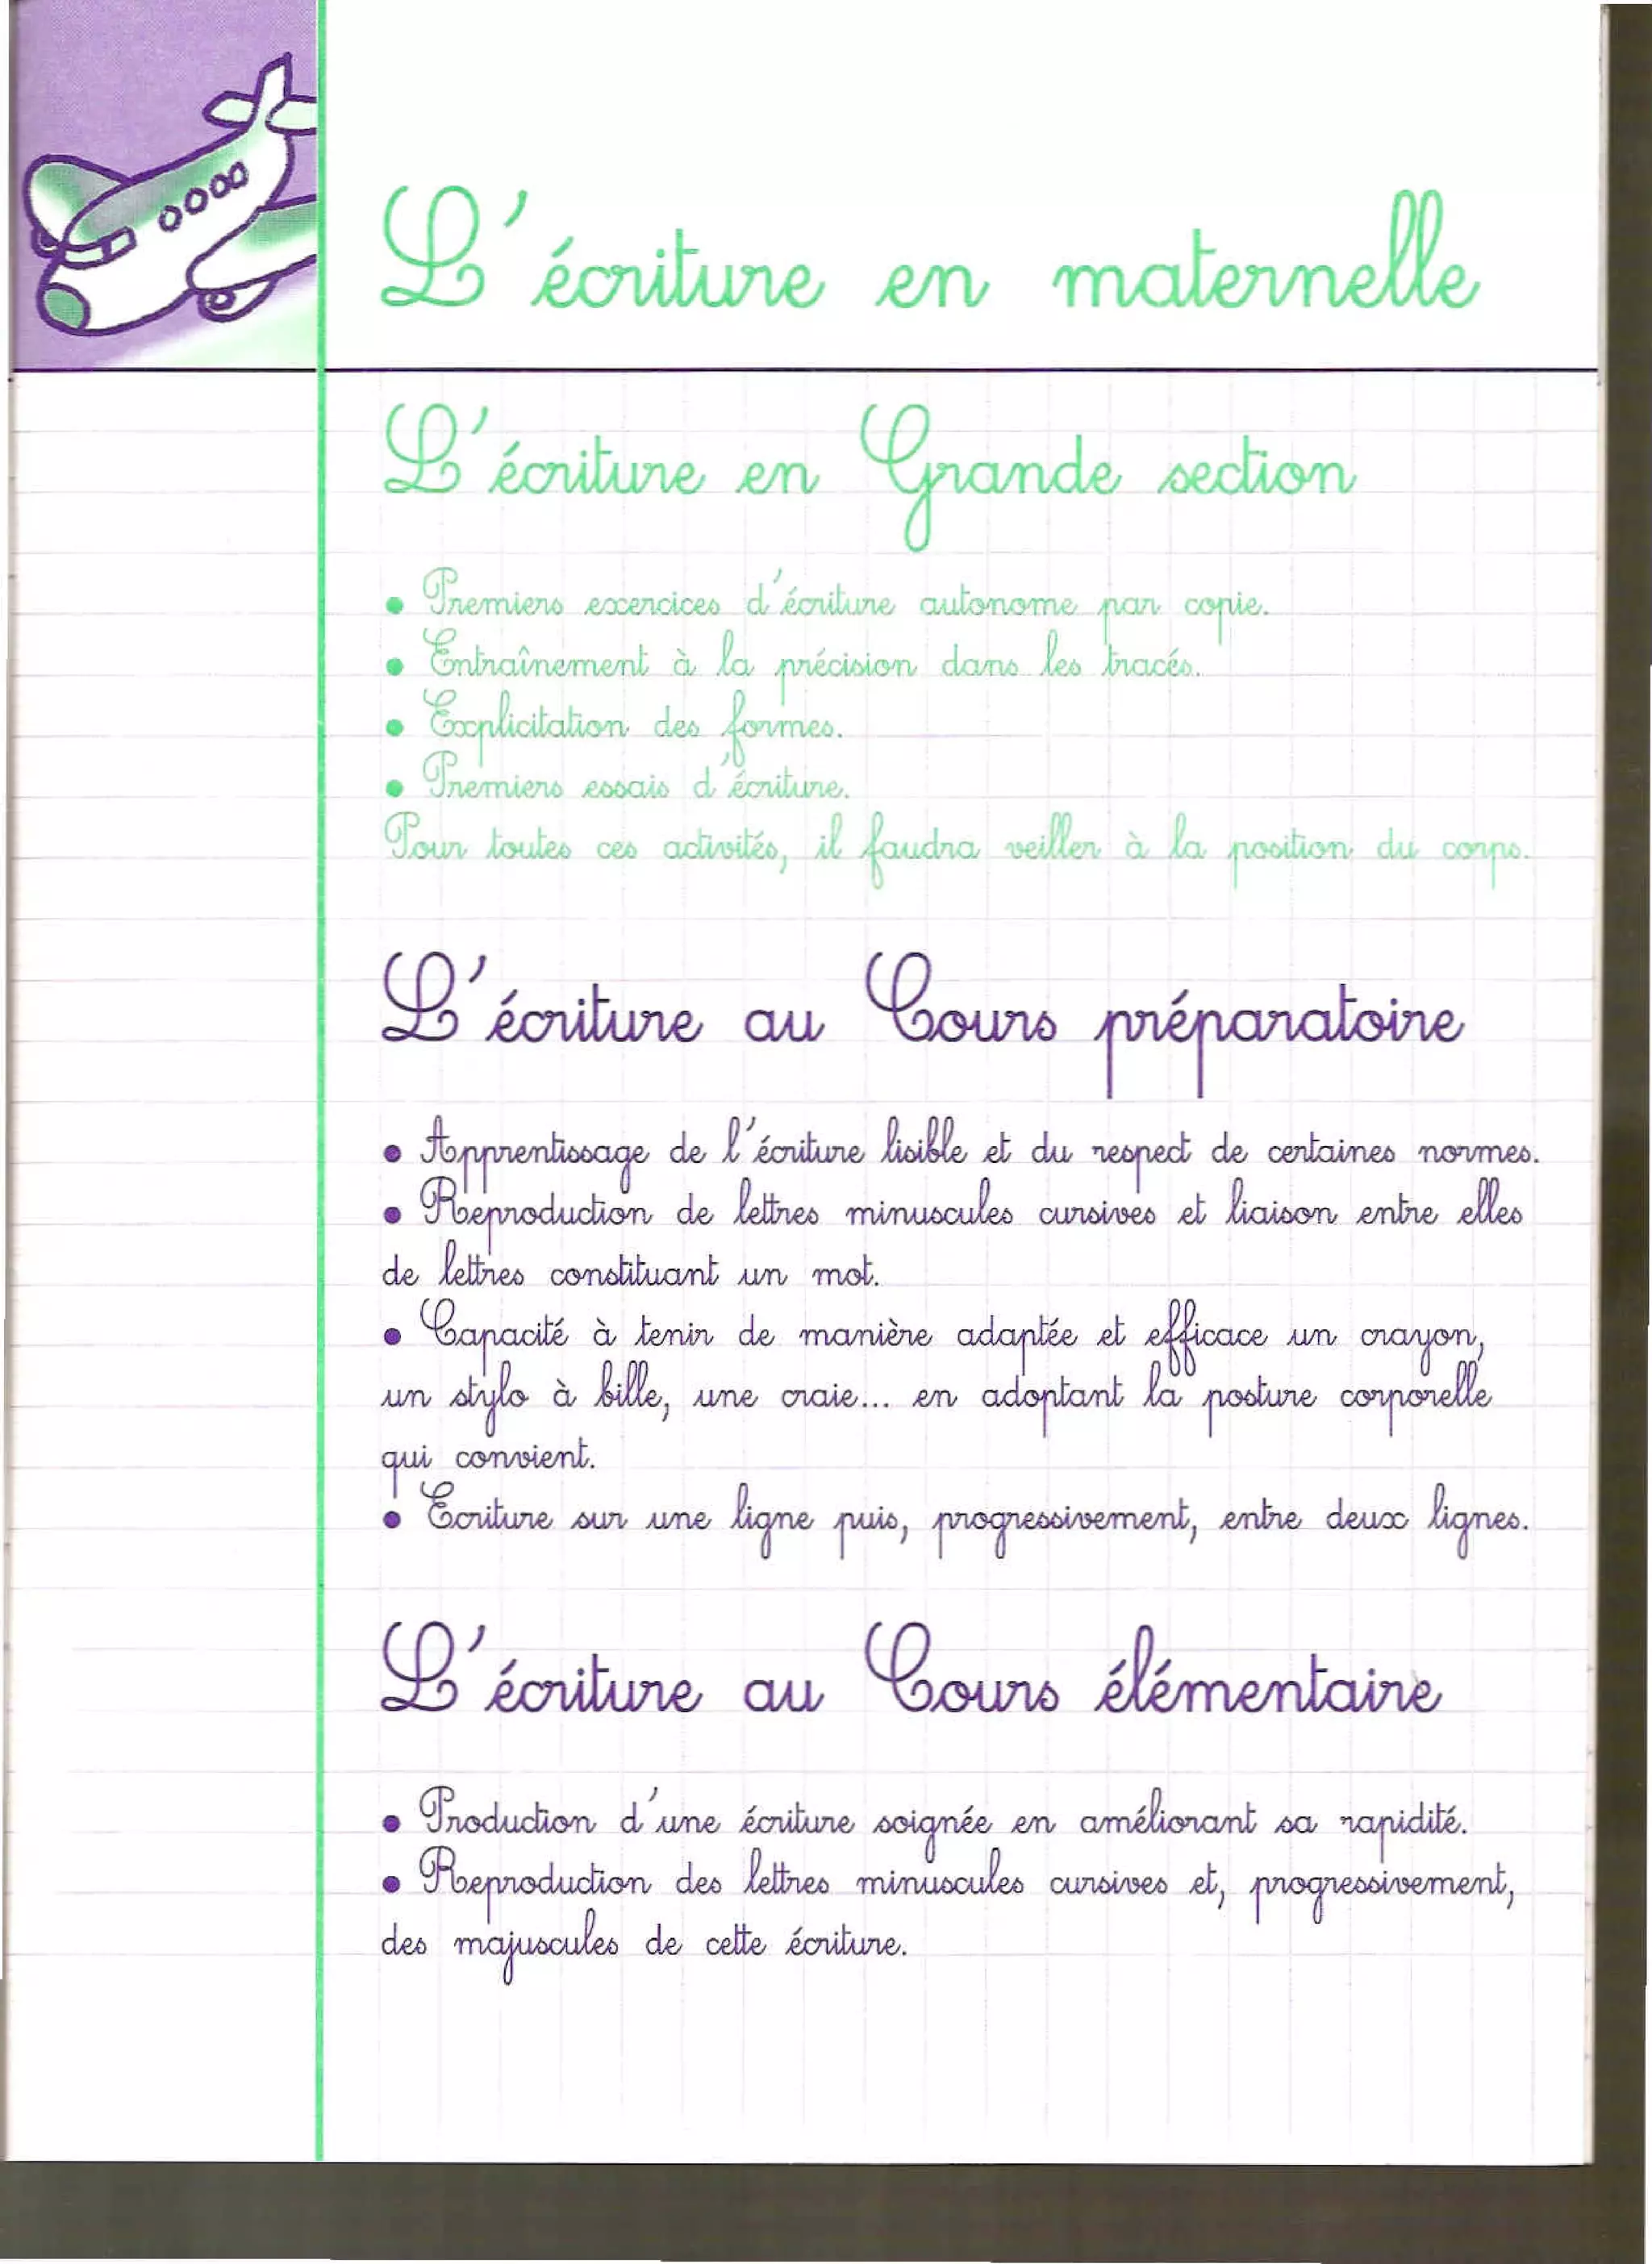 L'écriture en maternelle
L'écriture en Grande section
• Premiers exercices d'écriture autonome par copie.
• Entraînement à la précision dans les tracés.
• Explicitation des formes.
• Premiers essais d'écriture.
Pour toutes ces activités, il faudra veiller à la position du corps.
L'écriture au Cours préparatoire
• Apprentissage de l'écriture lisible et du respect de certaines normes.
• Reproduction de lettres minuscules cursives et liaison entre elles
de lettres constituant un mot.
• Capacité à tenir de manière adaptée et efficace un crayon,
un stylo à bille, une craie... en adoptant la posture corporelle
qui convient.
• Ecriture sur une ligne puis, progressivement, entre deux lignes.
L'écriture au Cours élémentaire
• Production d'une écriture soignée en améliorant sa rapidité.
• Reproduction des lettres minuscules cursives et, progressivement,
des majuscules de cette écriture.